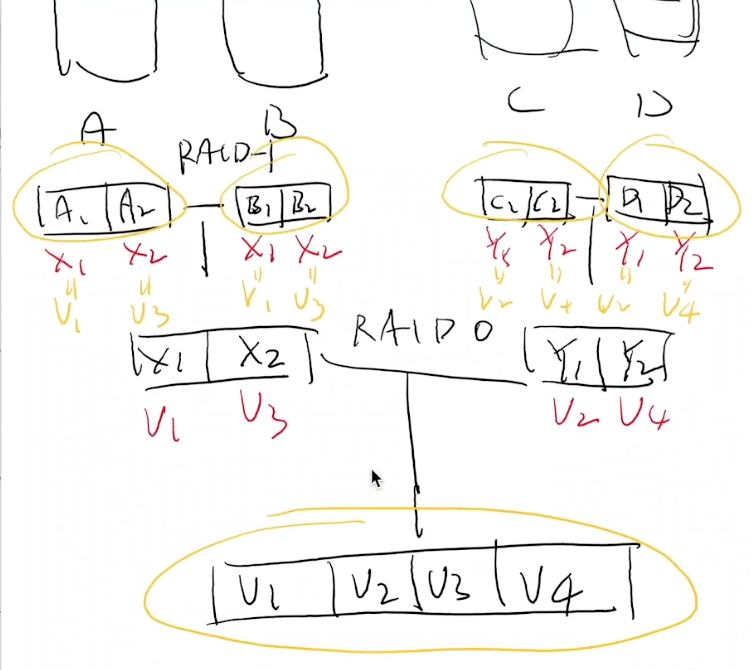 A B C D
RAID-1
A1 A2 B1 B2 C1 C2 D1 D2
X1 X2 X1 X2 Y1 Y2 Y1 Y2
" " " " " " " "
V1 V3 V1 V3 V2 V4 V2 V4
RAID 0
X1 X2 Y1 Y2
V1 V3 V2 V4
V1 V2 V3 V4